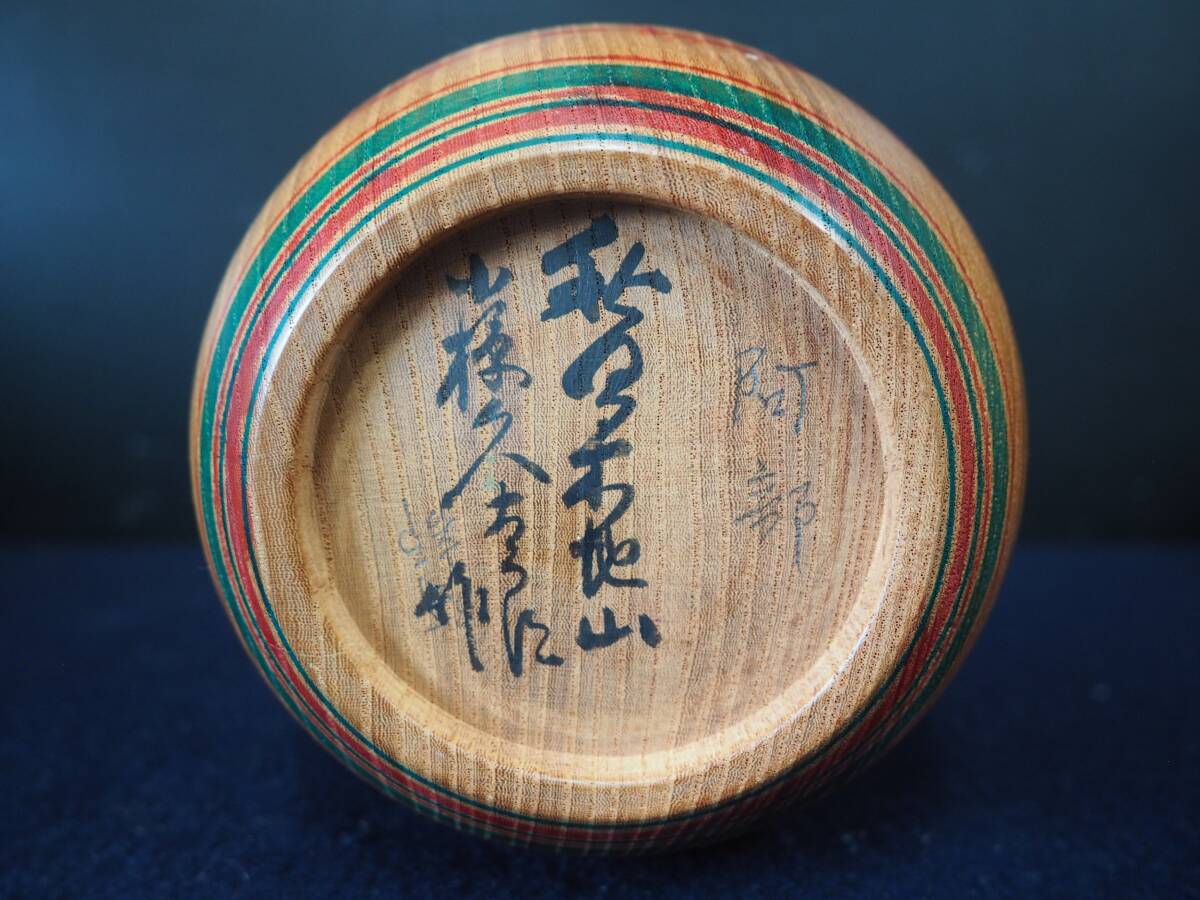 阿部
秋ノ宮木地山
小椋久太郎作